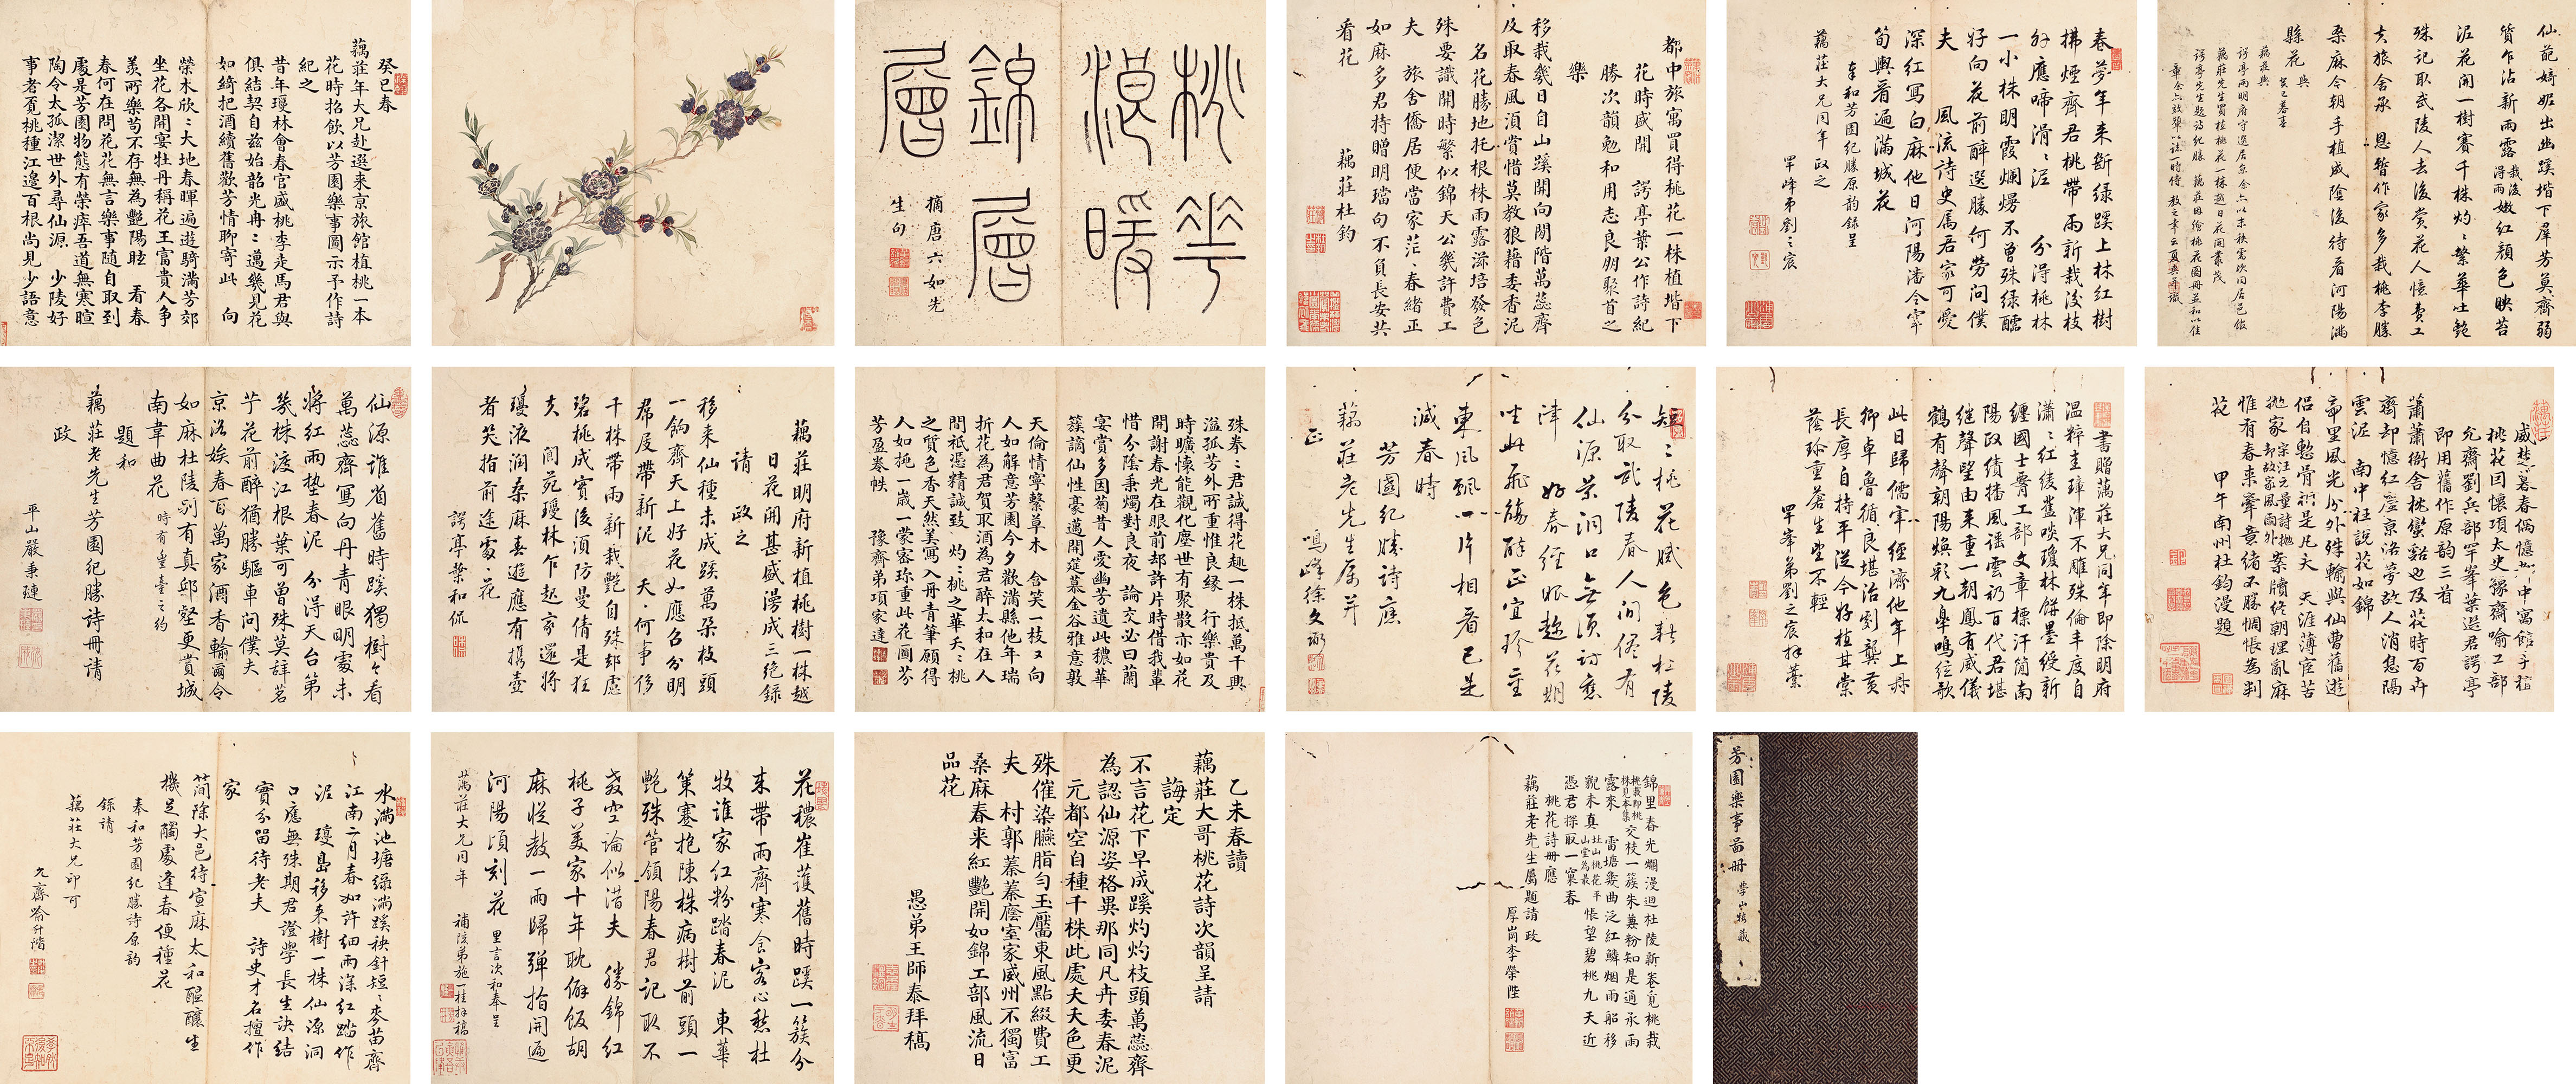 桃花
漠暖
錦層
層
摘唐六如先
生句
癸巳春
藕莊年大兄赴選來京旅館植桃一本
花時招飲以芳園樂事圖示予作詩
紀之
昔年瓊林會春官盛桃李走馬君與
俱結契自兹始韶光冉冉邁幾見花
如綺把酒續舊歡芳情聊寄此 向
榮木欣欣大地春暉遍遊騎滿芳郊
坐花各開宴牡丹稱花王富貴人争
羨所樂苟不存無為艷陽眩 看春
春何在問花花無言樂事随自取到
處是芳園物態有榮瘁吾道無寒暄
陶令太孤潔世外尋仙源 少陵好
事老覓桃種江邊百根尚見少語意
殊拳拳君誠得花趣一株抵萬千興
溢孤芳外所重惟良緣 行樂貴及
時曠懷能觀化塵世有聚散亦如花
開謝春光在眼前却許片時借我輩
惜分陰秉燭對良夜 論交必曰蘭
宴賞多因菊昔人愛幽芳遺此穠華
簇謫仙性豪邁開筵慕金谷雅意敦
天倫情寧繫草木 含笑一枝枝向
人如解意芳園今夕歡滿縣他年瑞
折花為君賀取酒為君醉太和在人
間祇憑精誠致 灼灼桃之華夭夭桃
之質色香天然美寫入丹青筆願得
人如桃一歲一蒙密珎重此花圖芬
芳盈卷帙 豫齋弟項家達
都中旅寓買得桃花一株植堦下
花時盛開 諤亭葉公作詩紀
勝次韻勉和用志良朋聚首之
樂
移栽幾日自山蹊開向閒階萬蕊齊
及取春風須賞惜莫教狼藉委香泥
名花勝地托根株雨露滋培發色
殊要識開時繁似錦天公幾許費工
夫 旅舍僑居便當家茫茫春緒正
如麻多君持贈明璫句不負長安共
看花
藕莊杜鈞
春夢年來斷綠蹊上林紅樹
拂煙齊君桃帶雨新栽後枝
好應啼滑滑泥 分得桃林
一小株明霞爛熳不曾殊綠醽
好向花前醉選勝何勞問僕
夫 風流詩史属君家可愛
深紅寫白麻他日河陽潘令宰
筍輿看遍滿城花
奉和芳園紀勝原韵録呈
藕莊大兄同年 政之
罕峰弟劉之宸
仙葩嬌妮出幽蹊堦下羣芳莫齊弱
質乍沾新雨露栽後得雨嫩紅顏色映苔
泥花開一樹賽千株灼灼繁華吐艷
殊記取武陵人去後賞花人憶費工
夫旅舍承 恩暫作家多栽桃李勝
桑麻今朝手植成陰後待看河陽滿
縣花
藕莊先生買植桃花一株越日花開叢茂
仙源誰省舊時蹊獨樹今看
萬蕊齊寫向丹青眼明處未
將紅雨墊春泥 分得天台第
幾株渡江根葉可曾殊莫辞茗
艼花前醉猶勝驅車問僕夫
京洛娭春百萬家酒香輸爾令
如麻杜陵別有真邱壑更賞城
南韋曲花 時有皇臺之約
題和
藕莊老先生芳園紀勝詩冊請
政
平山嚴秉璉
藕莊明府新植桃樹一株越
日花開甚盛漫成三絶録
請 政之
移来仙種未成蹊萬朶枝頭
一餉齊天上好花如應召分明
屏扆帶新泥 天天何事侈
千株帶雨新栽艷自殊却慮
碧桃成實後須防曼倩是狂
夫 閬苑瓊林乍起家還將
瓊液潤桑麻春遊應有携壺
者笑指前途處處花
諤亭葉和侃
短短桃花膩色新杜陵
分取武陵春人間儘有
仙源業洞口無須訪舊
津 好春經眼趁花期
坐此飛觴醉正宜珍重
東風飄一片相看已是
減春時
芳園紀勝詩應
藕莊老先生属并
正
鳴峰徐文
書贈藕莊大兄同年即除明府
温粹圭璋渾不雕殊倫丰度自
瀟瀟紅綾虀啖瓊林餅墨綬新
纏國士腰工部文章標汗簡南
陽政績播風謡雲礽百代君堪
継聲望由来重一朝鳳有威儀
鶴有聲朝陽煥彩九皐鳴絃歌
此日歸儒宰經濟他年上丹
卿卓魯循良堪治劇龔黄
長厚自持平從今好植甘棠
蔭珍重蒼生望不輕
罕峯弟劉之宸拜藁
威楚署春偶憶 中寓館手植
桃花因懷項太史豫齋喻工部
允齋劉兵部罕峯葉邑君諤亭
即用舊作原韵三首
蕭蕭衙舍桃蠻谿也及花時百卉
齊却憶紅塵京洛夢故人消息隔
雲泥 南中枉說花如錦
帝里風光分外殊輸與仙曹舊遊
侣自慙骨相是凡夫 天涯薄宦苦
抛家 案牘終朝理亂麻
惟有春来牽意緒不勝惆悵為判
花 甲午南州杜鈞漫題
水滿池塘綠滿蹊秧針短短麥苗齊
江南二月春如許細雨深紅踏作
泥 瓊島移来樹一株仙源洞
口應無殊期君證學長生訣結
實分留待老夫 詩史才名擅作
家
簡除大邑待宣麻太和醖釀生
機足觸處逢春便種花
奉和芳園紀勝詩原韵
錄請
藕莊大兄印可
允齋喻升階
花穠崔蒦舊時蹊一簇分
来帶雨齊寒食客心愁杜
牧誰家紅粉踏春泥 東華
策蹇抱陳株病樹前頭一
艷殊管領陽春君記取不
教空論似潜夫 勝錦紅
桃子美家十年耽僻飯胡
麻從教一雨歸彈指開遍
河陽頃刻花 里言次和奉呈
藕莊大兄同年
補陔弟施一桂拜稿
乙未春讀
藕莊大哥桃花詩次韻呈請
誨定
不言花下早成蹊灼灼枝頭萬蕊齊
為認仙源姿格異那同凡卉委春泥
元都空自種千株此處夭夭色更
殊催染臙脂勻玉靨東風點綴費工
夫 村郭蓁蓁廕室家威州不獨富
桑麻春来紅艷開如錦工部風流日
品花
愚弟王師泰拜稿
錦里春光爛漫迴杜陵新豢覓桃栽
桃栽即桃株見本集交枝一簇朱兼粉知是通承雨
露來 雷塘幾曲泛紅鱗烟雨船移
觀未真 悵望碧桃九天近
憑君探取一窠春
桃花詩冊應
藕莊老先生屬題請政
厚崗李榮陛
芳園樂事圖冊